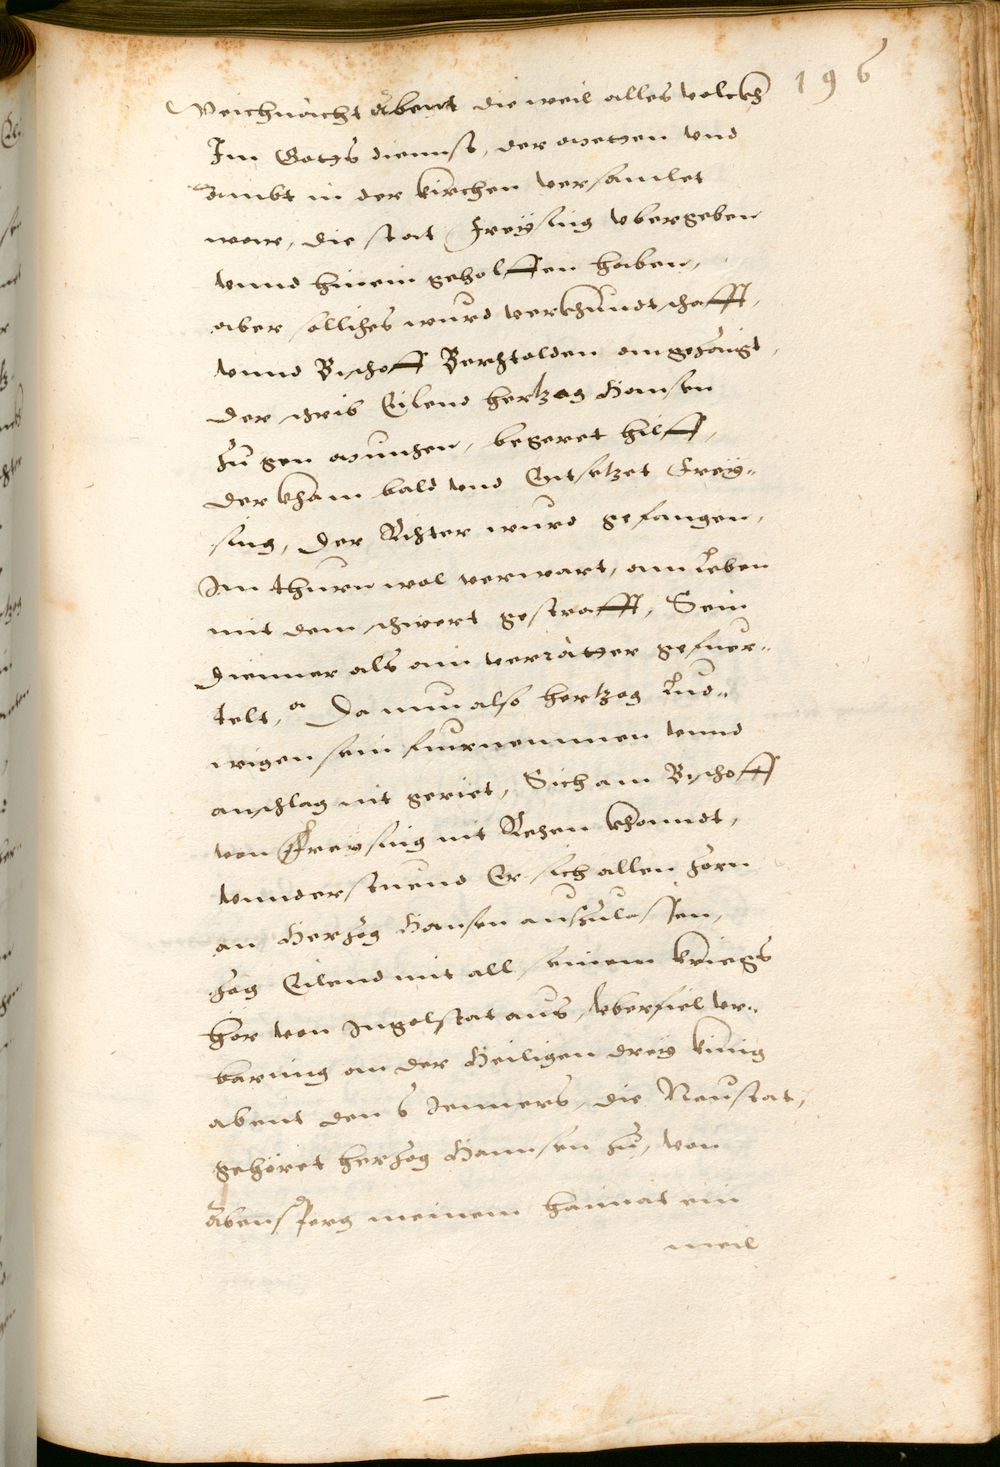 196
Weichnacht Abent die weil alles volckh
Im Gotzs diennst, der metten vnd
Ambt in der kirchen versamlet
war, die stat Freysing vbergeben
vnnd hinein geholffen haben,
aber solliches wurd verkhundtschafft,
vnnd Bischoff Berchtolden angezaigt,
der schrib Eilend hertzog Hansen
zu gen Munchen, begeret hilff,
der kham bald vnd Entsetzet Frey=
sing, Der Richter wurd gefangen,
Im thurn wol verwart, am Leben
mit dem schwert gestrafft, Sein
Dienner als ain verräter gefier=
telt, Da nun also hertzog Lud=
wigen sein furnemmen vnnd
anschlag nit geriet, Sich am Bischoff
von Freysing nit Rechen khonndt,
vnnderstuend Er sich allen zorn
an Herzog Hansen auszulassen,
zog Eilend mit all seinem kriegs
hör von Ingolstat aus, vberfiel vr=
baring an der Heiligen drey kinig
abent den 6 Jenners, die Neustat,
gehöret herzog Hannsen zu, von
Abensperg meinem haimat ein
meil